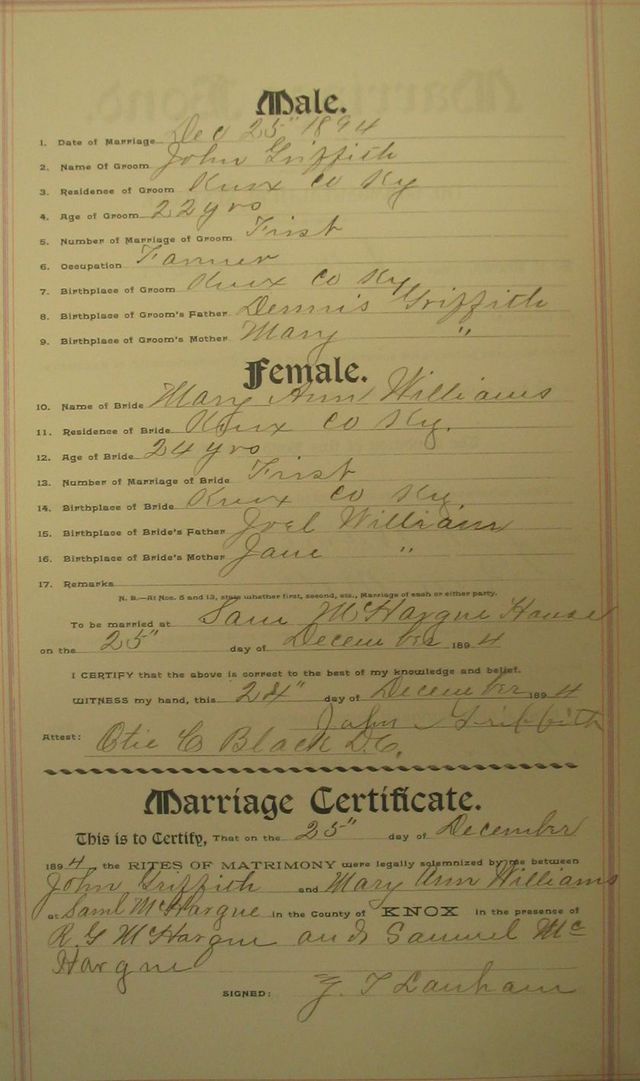 Male.
1. Date of Marriage Dec 25" 1894
2. Name Of Groom John Griffith
3. Residence of Groom Knox Co Ky
4. Age of Groom 22 yrs
5. Number of Marriage of Groom First
6. Occupation Farmer
7. Birthplace of Groom Knox Co Ky
8. Birthplace of Groom's Father Dennis Griffith
9. Birthplace of Groom's Mother Mary "
Female.
10. Name of Bride Mary Ann Williams
11. Residence of Bride Knox Co Ky.
12. Age of Bride 24 yrs
13. Number of Marriage of Bride First
14. Birthplace of Bride Knox Co Ky.
15. Birthplace of Bride's Father Joel William
16. Birthplace of Bride's Mother Jane "
17. Remarks
N. B.—At Nos. 5 and 13, state whether first, second, etc., Marriage of each or either party.
To be married at Sam McHargue House
on the 25" day of December 1894
I CERTIFY that the above is correct to the best of my knowledge and belief.
WITNESS my hand, this 24" day of December 1894
John Griffith
Attest: Otie C Black D.C.
Marriage Certificate.
This is to Certify, That on the 25" day of December
1894, the RITES OF MATRIMONY were legally solemnized by me between
John Griffith and Mary Ann Williams
at Saml McHargue in the County of KNOX in the presence of
R. G McHargue and Samuel Mc
Hargue
SIGNED: T Lanham